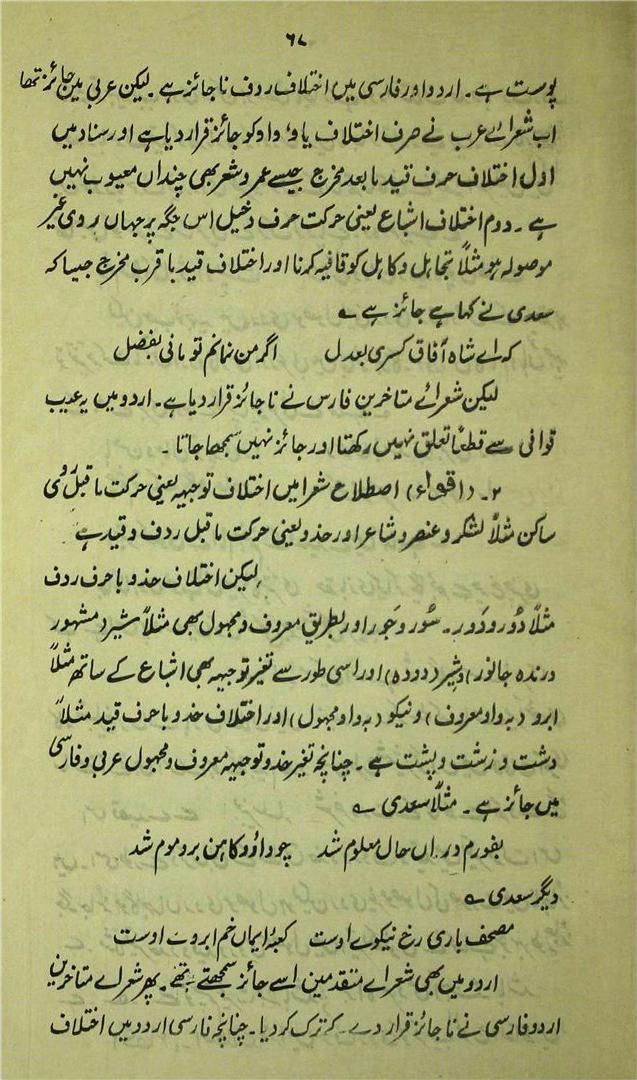 ۶۷
پوست ہے۔ اردو اور فارسی میں اختلاف ردف ناجائز ہے۔ لیکن عربی میں جائز تھا
اب شعرائے عرب نے صرف اختلاف یاو' واو کو جائز قرار دیا ہے اور سناد میں
اول اختلاف حرف قید با بعد مخرج جیسے عمرو شعر بھی چنداں معیوب نہیں
ہے۔ دوم اختلاف اشباع یعنی حرکت حرف دخیل اس جگہ پر جہاں روی غیر
موصولہ ہو مثلاً تجاہل و کاہل کو قافیہ کرنا اور اختلاف قید با قرب مخرج جیسا کہ
سعدی نے کہا ہے جائز ہے ؎
کہ اے شاہ آفاق کسری بعدل اگر من نمانم تو مانی بفضل
لیکن شعرائے متاخرین فارس نے ناجائز قرار دیا ہے۔ اردو میں یہ عیب
قوافی سے قطعاً تعلق نہیں رکھتا اور جائز نہیں سمجھا جاتا۔
۲۔ (اقواء) اصطلاح شعرا میں اختلاف توجیہہ یعنی حرکت ماقبل روی
ساکن مثلاً لشکر و عنصر و شاعر اور حذو یعنی حرکت ماقبل ردف و قید ہے
لیکن اختلاف حذو با حرف ردف
مثلاً دُور و دَور۔ سُور و جَور اور بطریق معروف و مجہول بھی مثلاً شیر (مشہور
درندہ جانور) و شِیر (دودہ) اور اسی طور سے تغیر توجیہہ بھی اشباع کے ساتھ مثلاً
ابرو (بہ واو معروف) و نیکو (بہ واو مجہول) اور اختلاف حذو با حرف قید مثلاً
دشت و زشت و پشت ہے۔ چنانچہ تغیر حذو توجیہہ معروف و مجہول عربی و فارسی
میں جائز ہے۔ مثلاً سعدی ؎
بفورم در آں حال معلوم شد چو داؤد کاہن برو موم شد
دیگر سعدی ؎
مصحف باری رخ نیکوے اوست کعبۂ ایماں خم ابروے اوست
اردو میں بھی شعراے متقدمین اسے جائز سمجھتے تھے۔ پھر شعراے متاخرین
اردو فارسی نے ناجائز قرار دے کر ترک کر دیا۔ چنانچہ فارسی اردو میں اختلاف